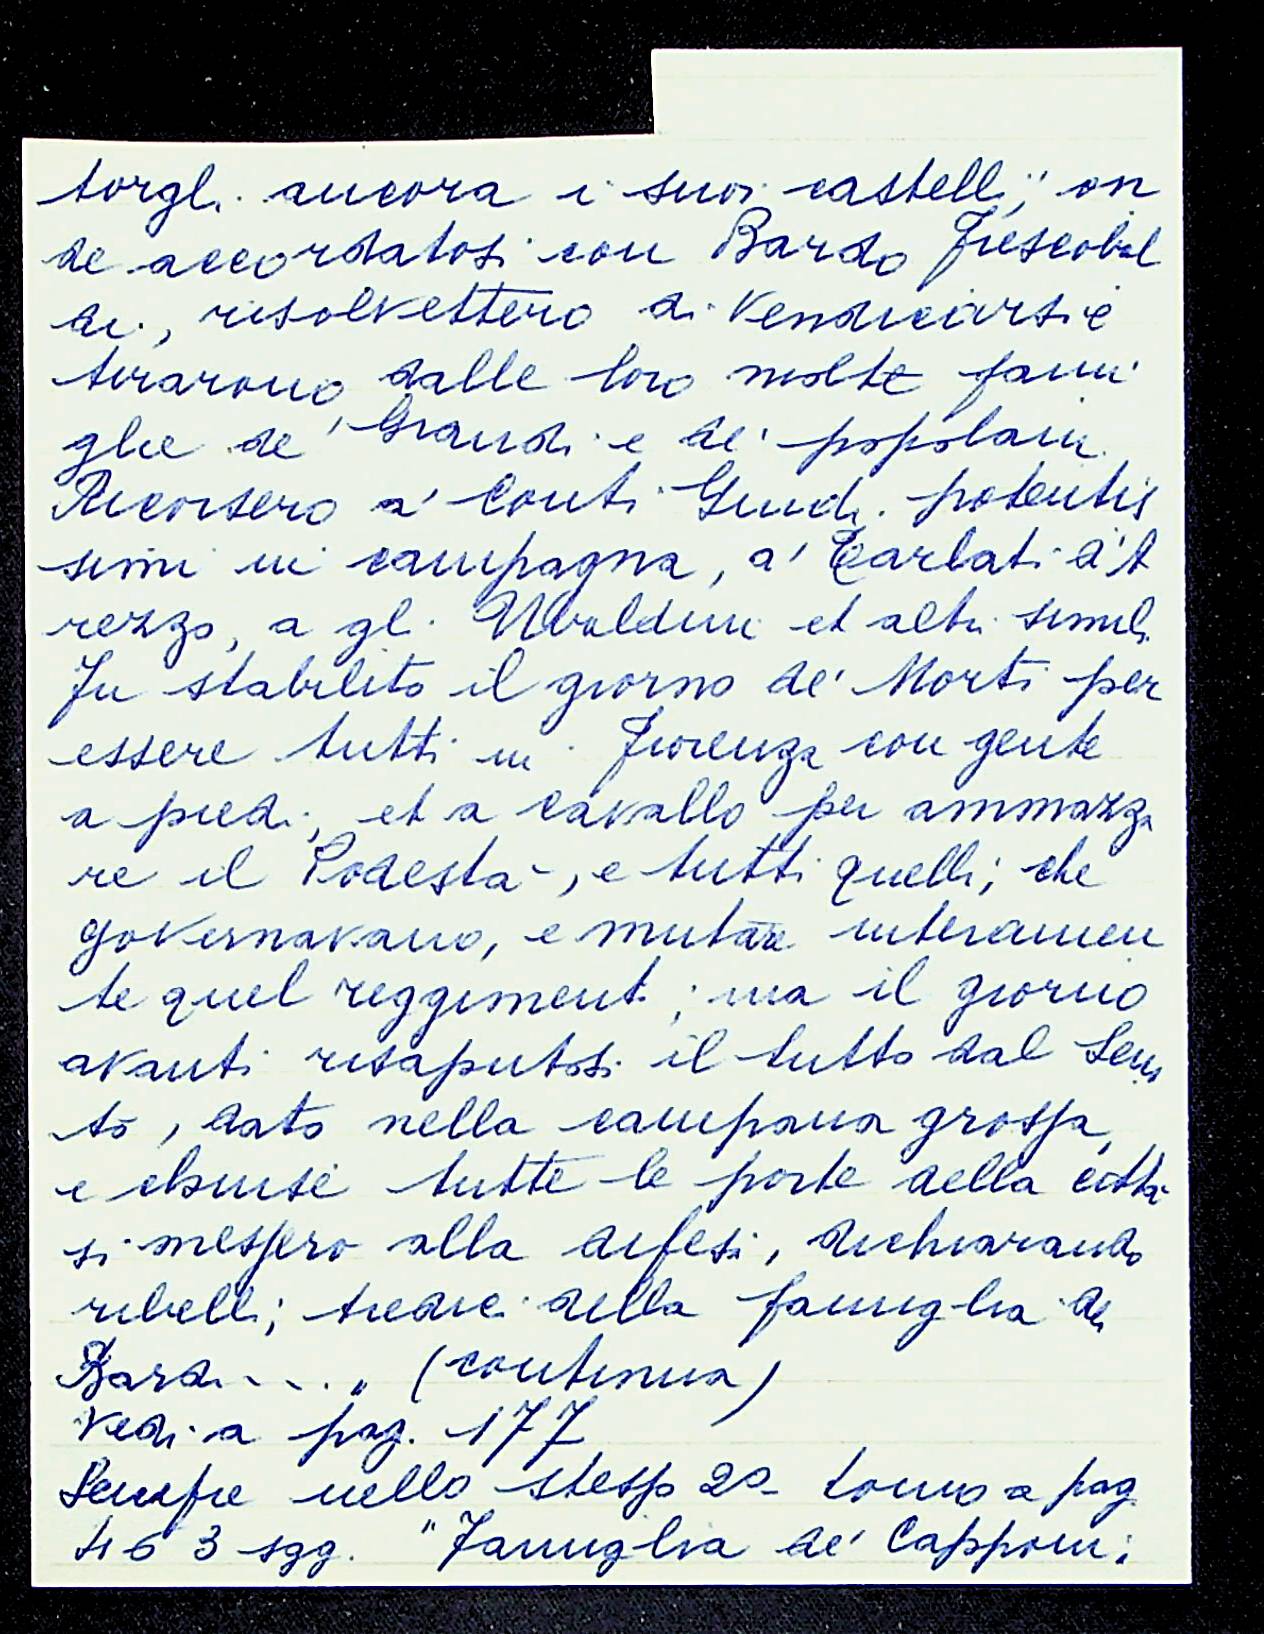 torgli ancora i suoi castelli," on
de accordatosi con Bardo Frescobal
di, risolvettero di vendicarsi e
tirarono dalle loro molte fami
glie de' Grandi e de' popolani.
Ricorsero a' Conti Guidi potentis
simi in campagna, a' Tarlati d'A
rezzo, a gli Ubaldini et altri simili.
Fu stabilito il giorno de' Morti per
essere tutti in Fiorenza con gente
a piedi, et a cavallo per ammazza
re il Podestà, e tutti quelli, che
governavano, e mutare interamen
te quel reggimento; ma il giorno
avanti risaputosi il tutto dal
dato nella campana grossa,
e chiuse tutte le porte della città
si messero alla difesa, dichiarando
ribelli; tredici della famiglia de
Bardi...." (continua)
Vedi a pag. 177
Sempre nello stesso 2º tomo a pag
463 sgg. "Famiglia de' Capponi;